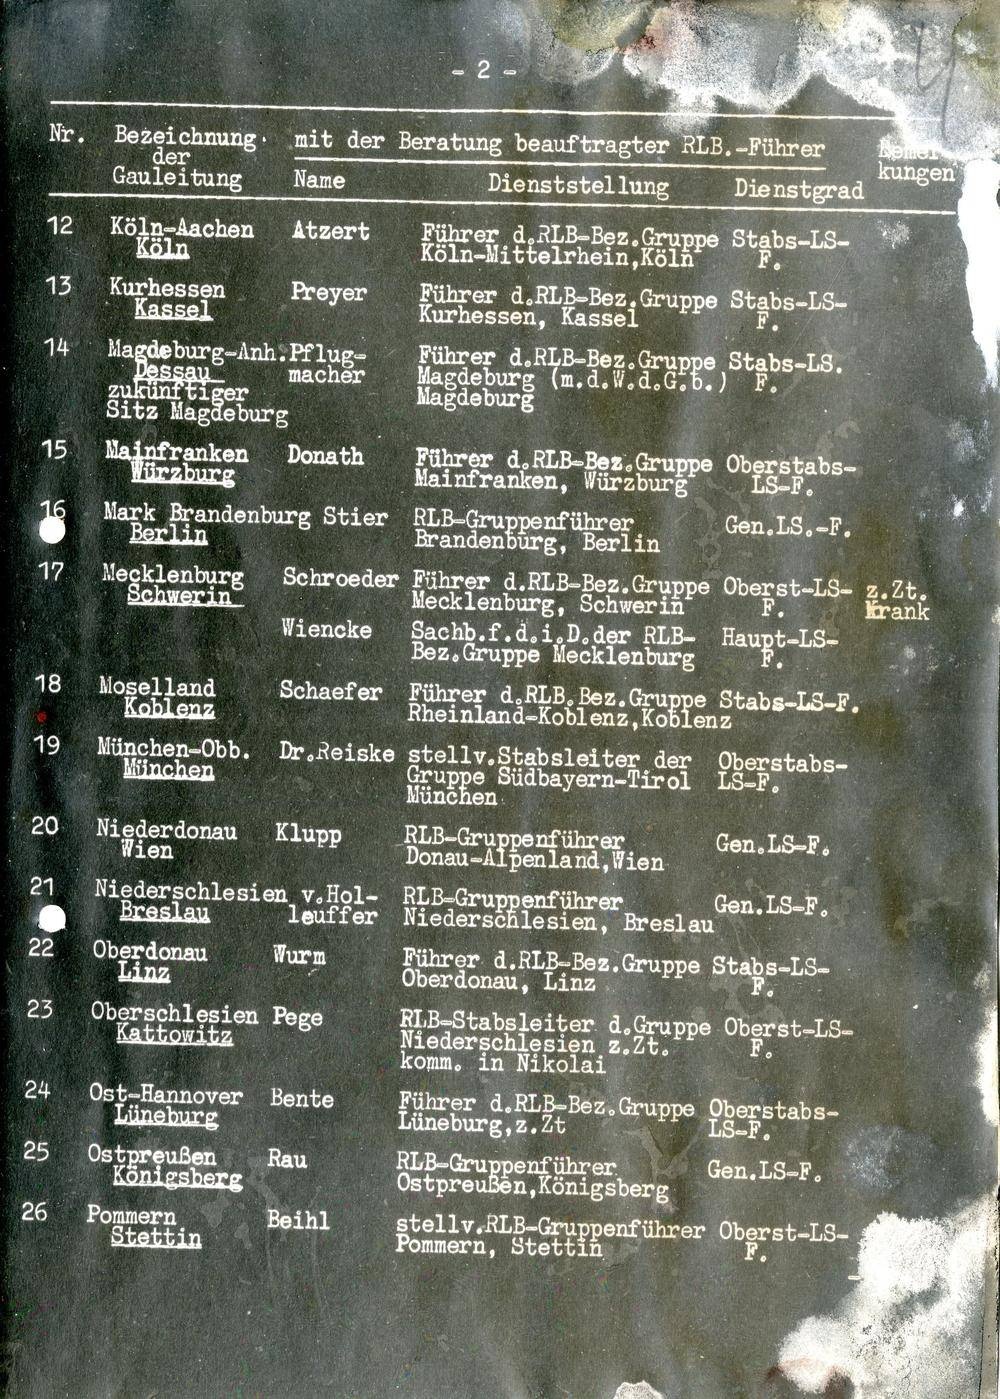 - 2 -
Nr. Bezeichnung mit der Beratung beauftragter RLB.-Führer Bemer-
der
Gauleitung Name Dienststellung Dienstgrad kungen
12 Köln-Aachen Atzert Führer d.RLB-Bez.Gruppe Stabs-LS-
Köln Köln-Mittelrhein,Köln F.
13 Kurhessen Preyer Führer d.RLB-Bez.Gruppe Stabs-LS-
Kassel Kurhessen, Kassel F.
14 Magdeburg-Anh. Pflug- Führer d.RLB-Bez.Gruppe Stabs-LS.
Dessau macher Magdeburg (m.d.W.d.G.b.) F.
zukünftiger Magdeburg
Sitz Magdeburg
15 Mainfranken Donath Führer d.RLB-Bez.Gruppe Oberstabs-
Würzburg Mainfranken, Würzburg LS-F.
16 Mark Brandenburg Stier RLB-Gruppenführer Gen.LS.-F.
Berlin Brandenburg, Berlin
17 Mecklenburg Schroeder Führer d.RLB-Bez.Gruppe Oberst-LS- z.Zt.
Schwerin Mecklenburg, Schwerin F. Krank
Wiencke Sachb.f.d.i.D.der RLB- Haupt-LS-
Bez.Gruppe Mecklenburg F.
18 Moselland Schaefer Führer d.RLB.Bez.Gruppe Stabs-LS-F.
Koblenz Rheinland-Koblenz,Koblenz
19 München-Obb. Dr.Reiske stellv.Stabsleiter der Oberstabs-
München Gruppe Südbayern-Tirol LS-F.
München
20 Niederdonau Klupp RLB-Gruppenführer Gen.LS-F.
Wien Donau-Alpenland,Wien
21 Niederschlesien v.Hol- RLB-Gruppenführer Gen.LS-F.
Breslau leuffer Niederschlesien, Breslau
22 Oberdonau Wurm Führer d.RLB-Bez.Gruppe Stabs-LS-
Linz Oberdonau, Linz F.
23 Oberschlesien Pege RLB-Stabsleiter d.Gruppe Oberst-LS-
Kattowitz Niederschlesien z.Zt. F.
komm. in Nikolai
24 Ost-Hannover Bente Führer d.RLB-Bez.Gruppe Oberstabs-
Lüneburg Lüneburg,z.Zt LS-F.
25 Ostpreußen Rau RLB-Gruppenführer Gen.LS-F.
Königsberg Ostpreußen,Königsberg
26 Pommern Beihl stellv.RLB-Gruppenführer Oberst-LS-
Stettin Pommern, Stettin F.